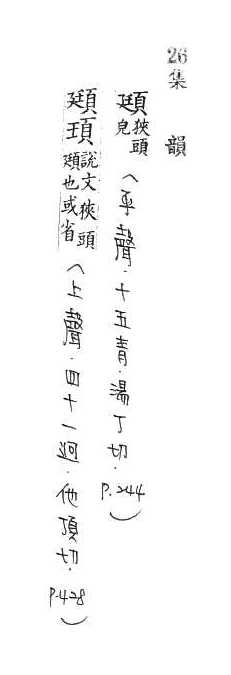 26集韻
頲狹頭皃(平聲.十五青.湯丁切.P.244)
頲說文狹頭頲也或省(上聲.四十一迥.他頂切.P.428)